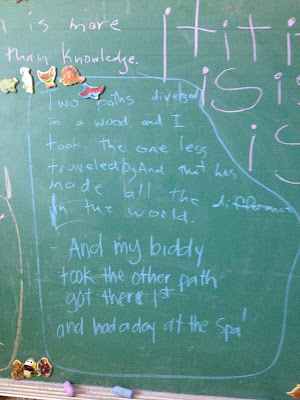 n is more
than knowledge.
If it i
iSi
iS
Two paths diverged
in a wood, and I
took the one less
traveled by And that has
made all the difference
In the world.
And my biddy
took the other path
got there 1st
and had a day at the spa!